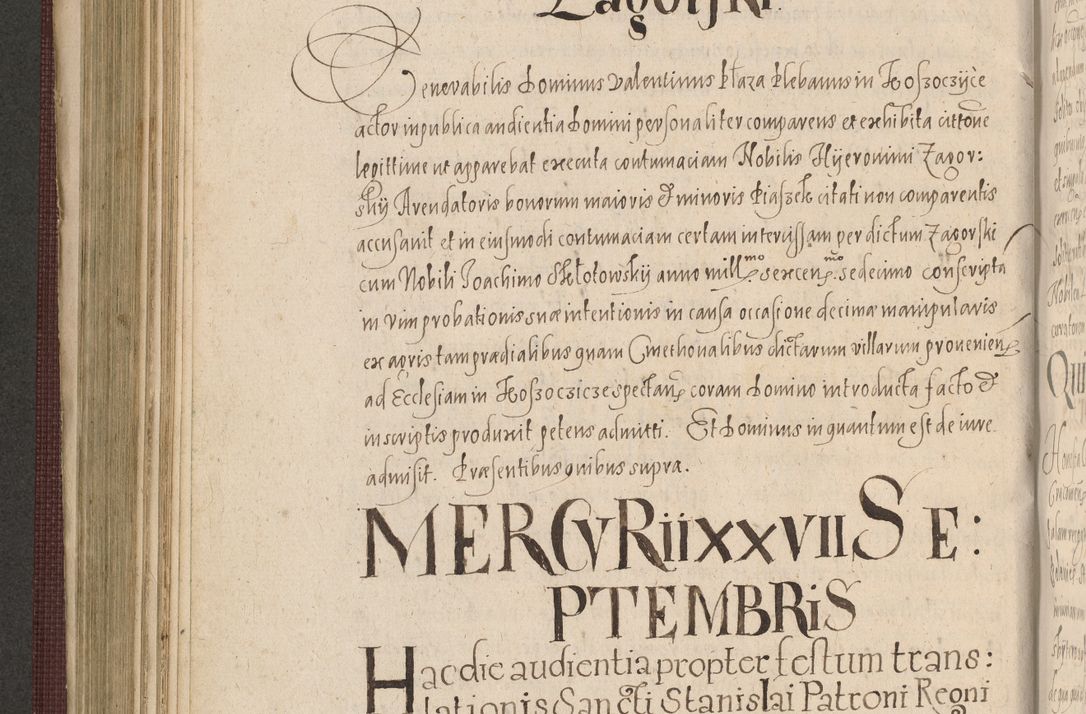 Zagorski.
Venerabilis Dominus Valentinus Płaza Plebanus in Koszoczÿce
actor in publica audientia Domini personaliter comparens et exhibita cittone
legittime ut apparebat executa contumaciam Nobilis Hÿeronimi Zagor:
skÿ Arendatoris bonorum maioris & minoris Piaszek citati non comparentis
accusavit et in eiusmodi contumaciam certam intercissam per dictum Zagorski
cum Nobili Joachimo Skłotowskÿ anno mill.mo sexcen.mo sedecimo conscripta
in vim probationis suæ intentionis in causa occasione decimæ manipularis
ex agris tam prædialibus quam Cmethonalibus dictarum villarum provenien
ad Ecclesiam in Koszoczicze spectan coram Domino introducta facto &
in scriptis produxit petens admitti. Et Dominus in quantum est de iure
admisit. Præsentibus quibus supra.
MERCVRii XXVII SE:
PTEMBRiS
Hac die audientia propter festum trans:
lationis Sancti Stanislai Patroni Regni